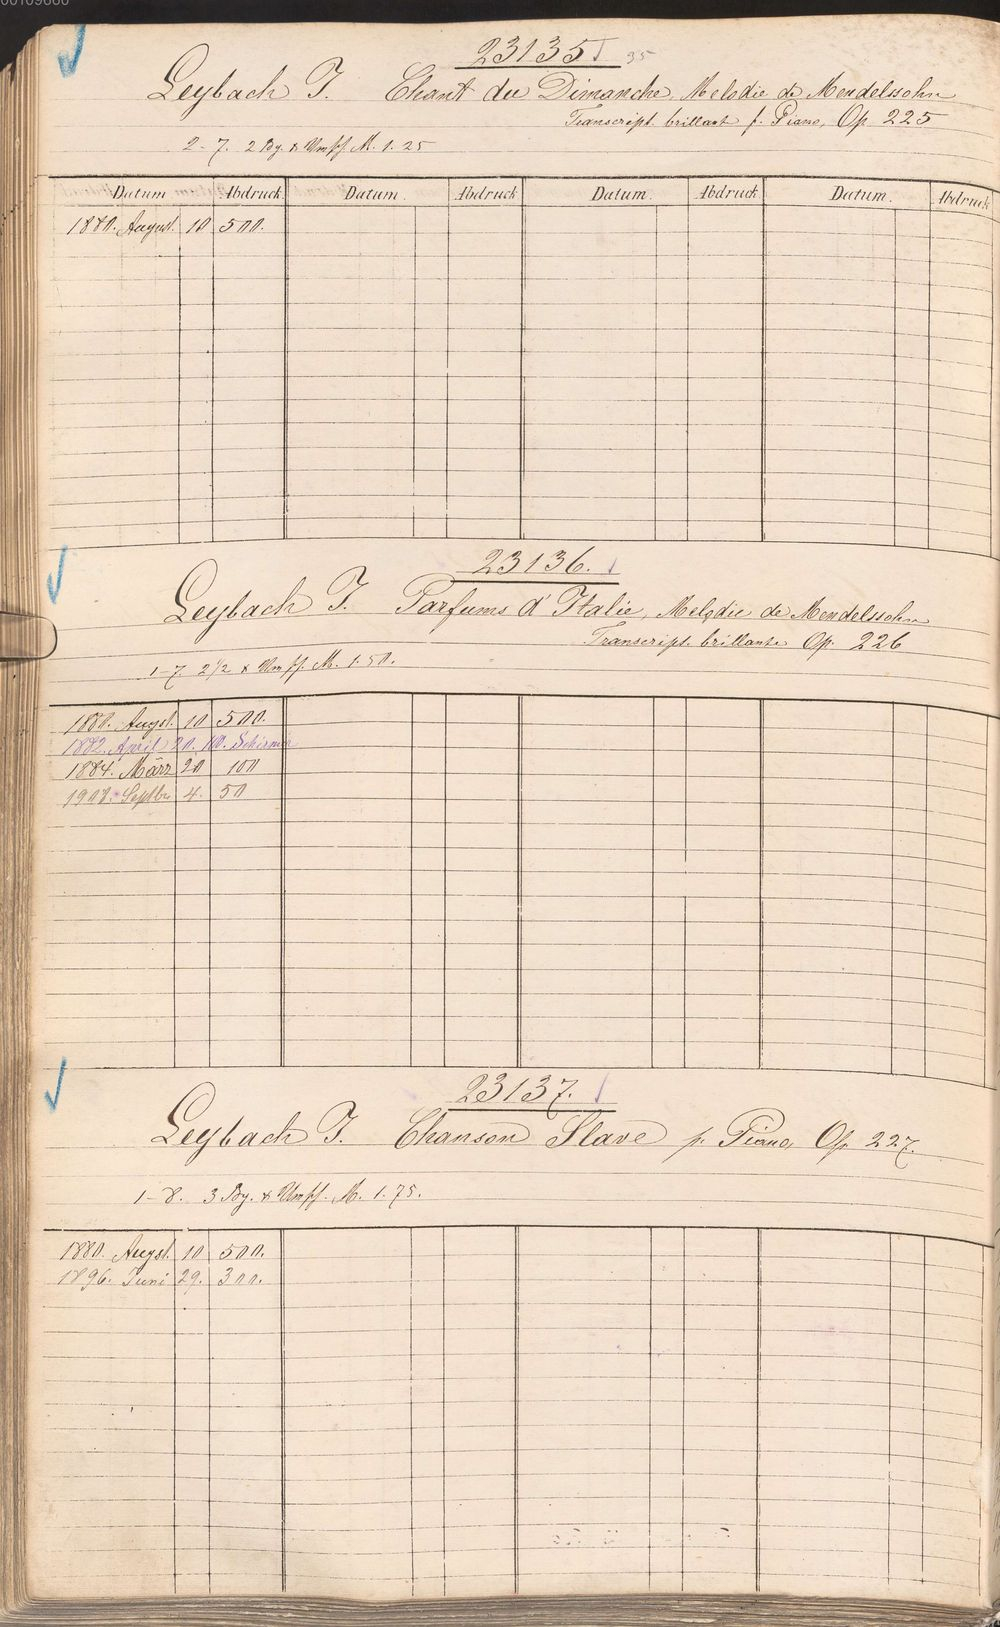 23135 35
Leybach J. Chant du Dimanche, Melodie de Mendelssohn
Transcript. brillant f. Piano, Op 225
2-7. 2 Bg. & Umschl. M. 1. 25
Datum Abdruck Datum. Abdruck Datum. Abdruck Datum. Abdruck
1880. August. 10 500.
23136.
Leybach J. Parfums d'Italie, Melodie de Mendelssohn
Transcript. brillante Op. 226
1-7. 2 1/2 & Umschl. M. 1. 50.
1880. Augst. 10 500.
1882. April 20. 100. Schirmer
1884. März 20 100
1908. Septbr. 4. 50
23137.
Leybach J. Chanson Slave f. Piano, Op. 227.
1-8. 3 Bg. & Umschl. M. 1. 75.
1880. Augst. 10 500.
1896. Juni 29. 300.